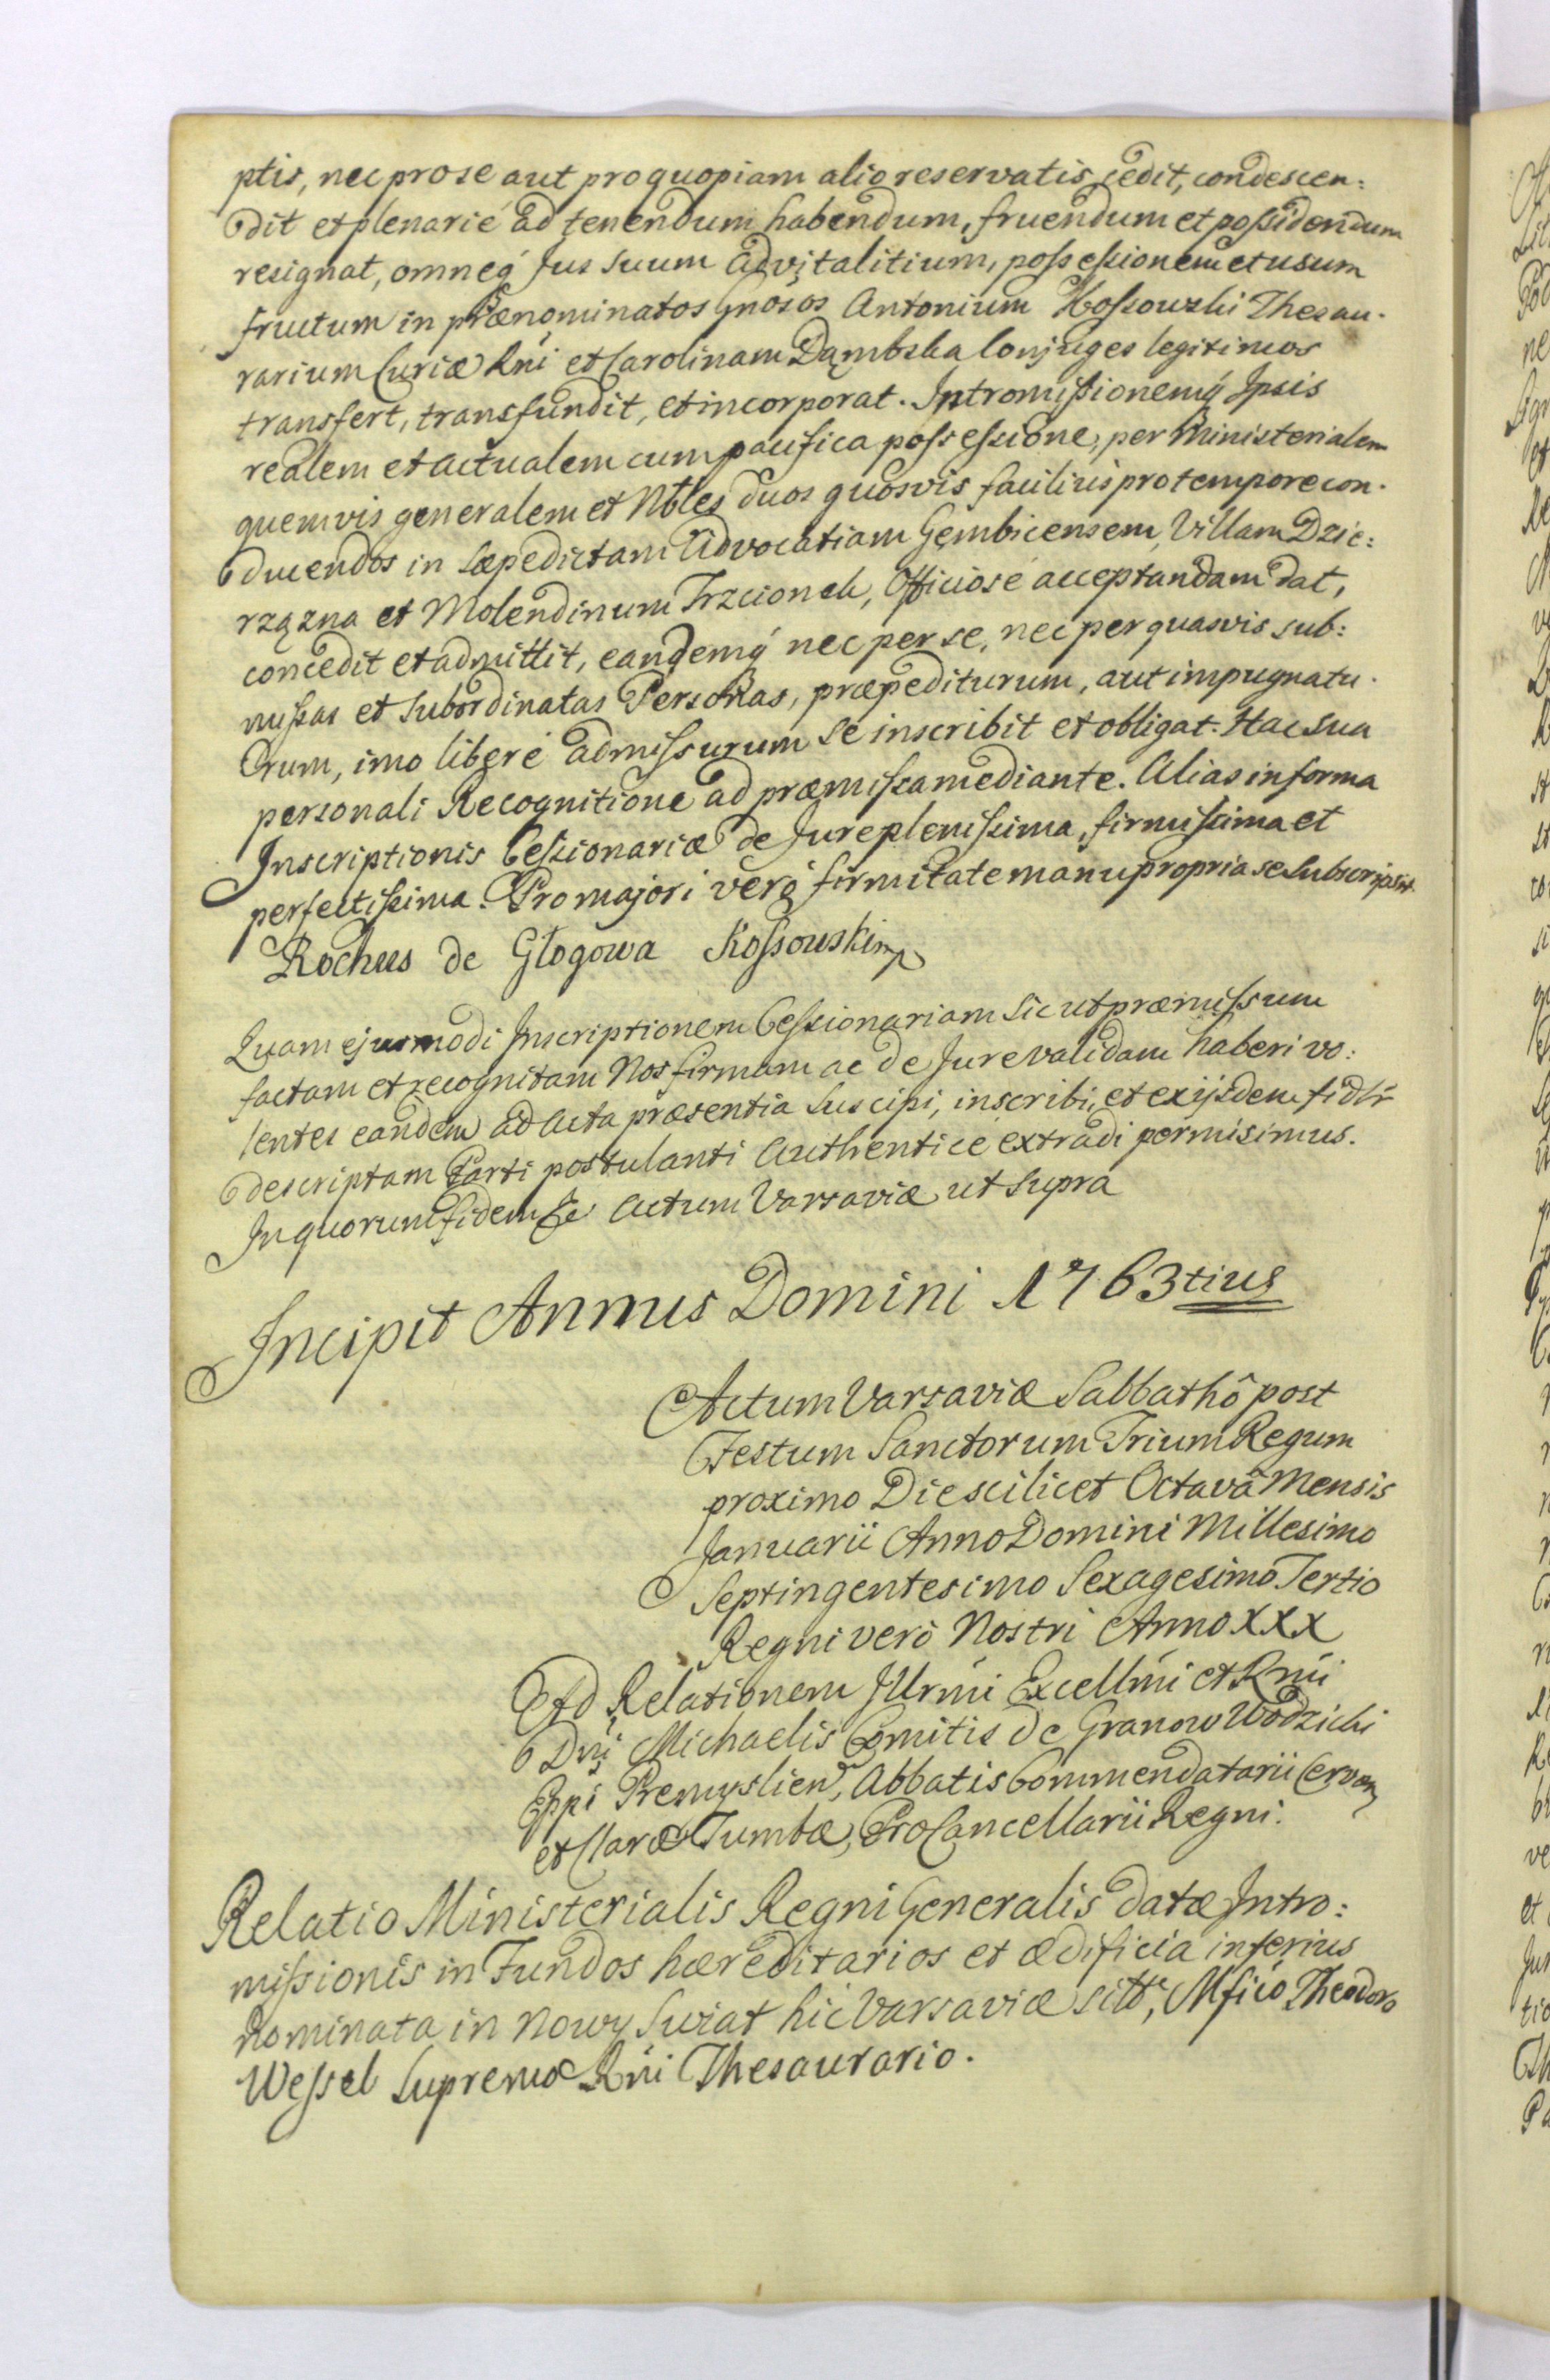 ptis, nec pro se aut pro quopiam alio reservatis cedit, condescen:
dit et plenarié ad tenendum habendum, fruendum et possidendum
resignat, omneq́ Jus suum advitalitium, possessionem et usum
fructum in prænominatos Gnosos Antonium Kossowski Thesau-
rarium Curiæ Rni et Carolinam Dąmbska Conjuges legitimos
transfert, transfundit, et incorporat. Intromissionemq́ Ipsis
realem et actualem cum pacifica possessione, per Ministerialem
quemvis generalem et Nbles duos quosvis facilius pro tempore con-
ducendos in sæpedictam Advocatiam Gembicensem, Villam Dzie:
rzązna et Molendinum Trzcionek, Officiosé acceptandam dat,
concedit et admittit, eandemq́ nec per se, nec per quasvis sub:
missas et subordinatas Personas, præpediturum, aut impugnatu-
rum, imo liberé admissurum se inscribit et obligat. Hac sua
personali Recognitione ad præmissa mediante. Alias in forma
Inscriptionis Cessionariæ de Jure plenissima, firmissima et
perfectissima. Pro majori veró firmitate manu propria se subscripsit.
Rochus de Głogowa Kossowski mp
Quam ejusmodi Inscriptionem Cessionariam sic ut præmissum
factam et recognitam Nos firmam ac de Jure validam haberi vo:
lentes eandem ad Acta præsentia suscipi, inscribi, et ex ijsdem fidlr
descriptam Parti postulanti Authenticé extradi permisimus.
In quorum fidem &c Actum Varsaviæ ut supra
Incipit Annus Domini 1763tius
Actum Varsaviæ Sabbathô post
Festum Sanctorum Trium Regum
proximo Die scilicet Octavâ Mensis
Januarii Anno Domini Millesimo
Septingentesimo Sexagesimo Tertio
Regni veró Nostri Anno XXX
Ad Relationem Illrmi Excellmi et Rmi
Dni Michaelis Comitis de Granow Wodzicki
Eppi Premyslien, Abbatis Commendatarii
et Claræ Tumbæ, ProCancellarii Regni.
Relatio Ministerialis Regni Generalis datæ Intro:
missionis in Fundos hæreditarios et ædificia inferius
nominata in Nowy Swiat hic Varsaviæ sitt, Mfico Theodoro
Wessel Supremo Rni Thesaurario.